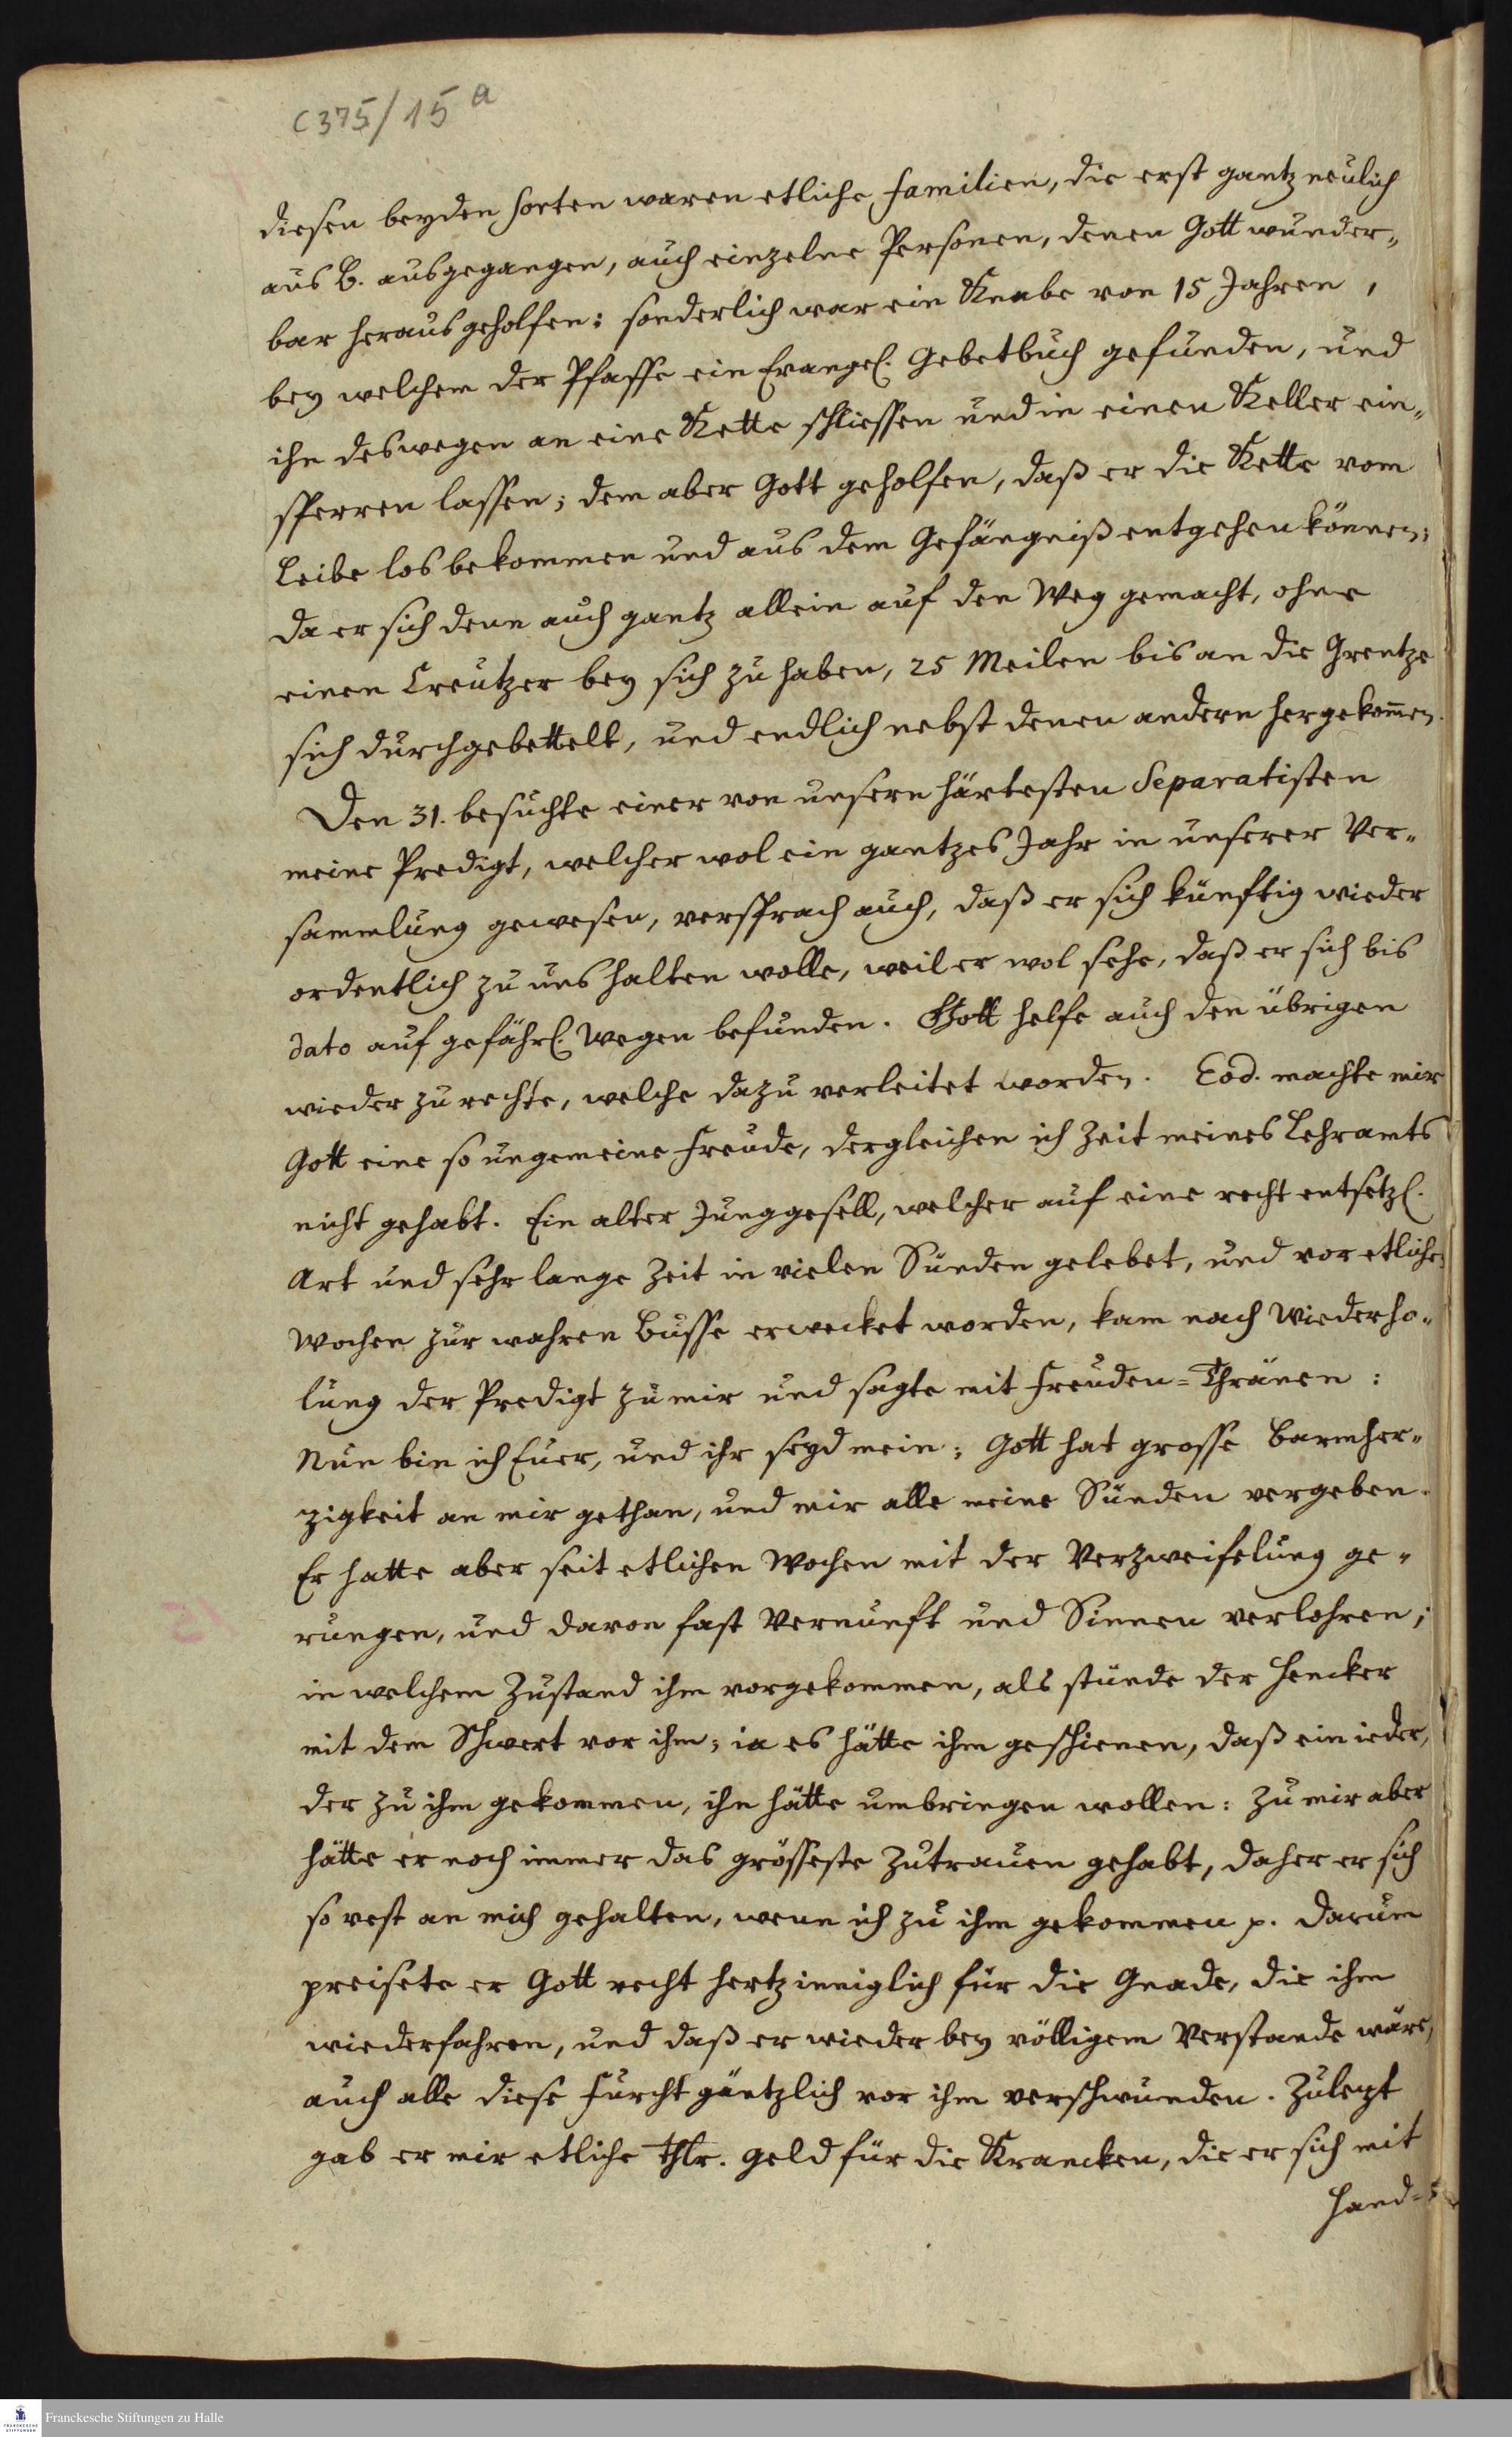 C 375/15 a
diesen beyden Sorten waren etliche Familien, die erst gantz neulich
aus B. ausgegangen, auch einzelne Personen, denen Gott wunder-
bar heraus geholfen: sonderlich war ein Knabe von 15 Jahren,
bey welchem der Pfaffe ein Evangel. Gebetbuch gefunden, und
ihn deswegen an eine Kette schliessen und in einen Keller ein-
sperren lassen; dem aber Gott geholfen, daß er die Kette vom
Leibe los bekommen und aus dem Gefängniß entgehen können;
da er sich denn auch gantz allein auf den Weg gemacht, ohne
einen Creutzer bey sich zu haben, 25 Meilen bis an die Grentze
sich durchgebettelt, und endlich nebst denen andern hergekom̅en.
Den 31. besuchte einer von unsern härtesten Separatisten
meine Predigt, welcher wol ein gantzes Jahr in unserer Ver-
sammlung gewesen, versprach auch, daß er sich künftig wieder
ordentlich zu uns halten wolle, weil er wol sehe, daß er sich bis
dato auf gefährl. Wegen befunden. Gott helfe auch den übrigen
wieder zu rechte, welche dazu verleitet worden. Eod. machte mir
Gott eine so ungemeine Freude, dergleichen ich Zeit meines Lehramts
nicht gehabt. Ein alter Junggesell, welcher auf eine recht entsetzl.
Art und sehr lange Zeit in vielen Sünden gelebet, und vor etlichen
Wochen zur wahren Busse erwecket worden, kam nach Wiederho-
lung der Predigt zu mir und sagte mit Freuden=Thränen:
Nun bin ich Euer, und ihr seyd mein; Gott hat grosse Barmher-
zigkeit an mir gethan, und mir alle meine Sünden vergeben.
Er hatte aber seit etlichen Wochen mit der Verzweifelung ge-
rungen, und davon fast Vernunft und Sinnen verlohren;
in welchem Zustand ihm vorgekommen, als stünde der Hencker
mit dem Schwert vor ihm; ia es hätte ihm geschienen, daß ein ieder,
der zu ihm gekommen, ihn hätte umbringen wollen: zu mir aber
hätte er noch immer das grösseste Zutrauen gehabt, daher er sich
so vest an mich gehalten, wenn ich zu ihm gekommen p. Darum
preisete er Gott recht hertzinniglich für die Gnade, die ihm
wiederfahren, und daß er wieder bey völligem Verstande wäre,
auch alle diese Furcht gäntzlich vor ihm verschwunden. Zulezt
gab er mir etliche Thlr. Geld für die Krancken, die er sich mit
Hand=
Franckesche Stiftungen zu Halle